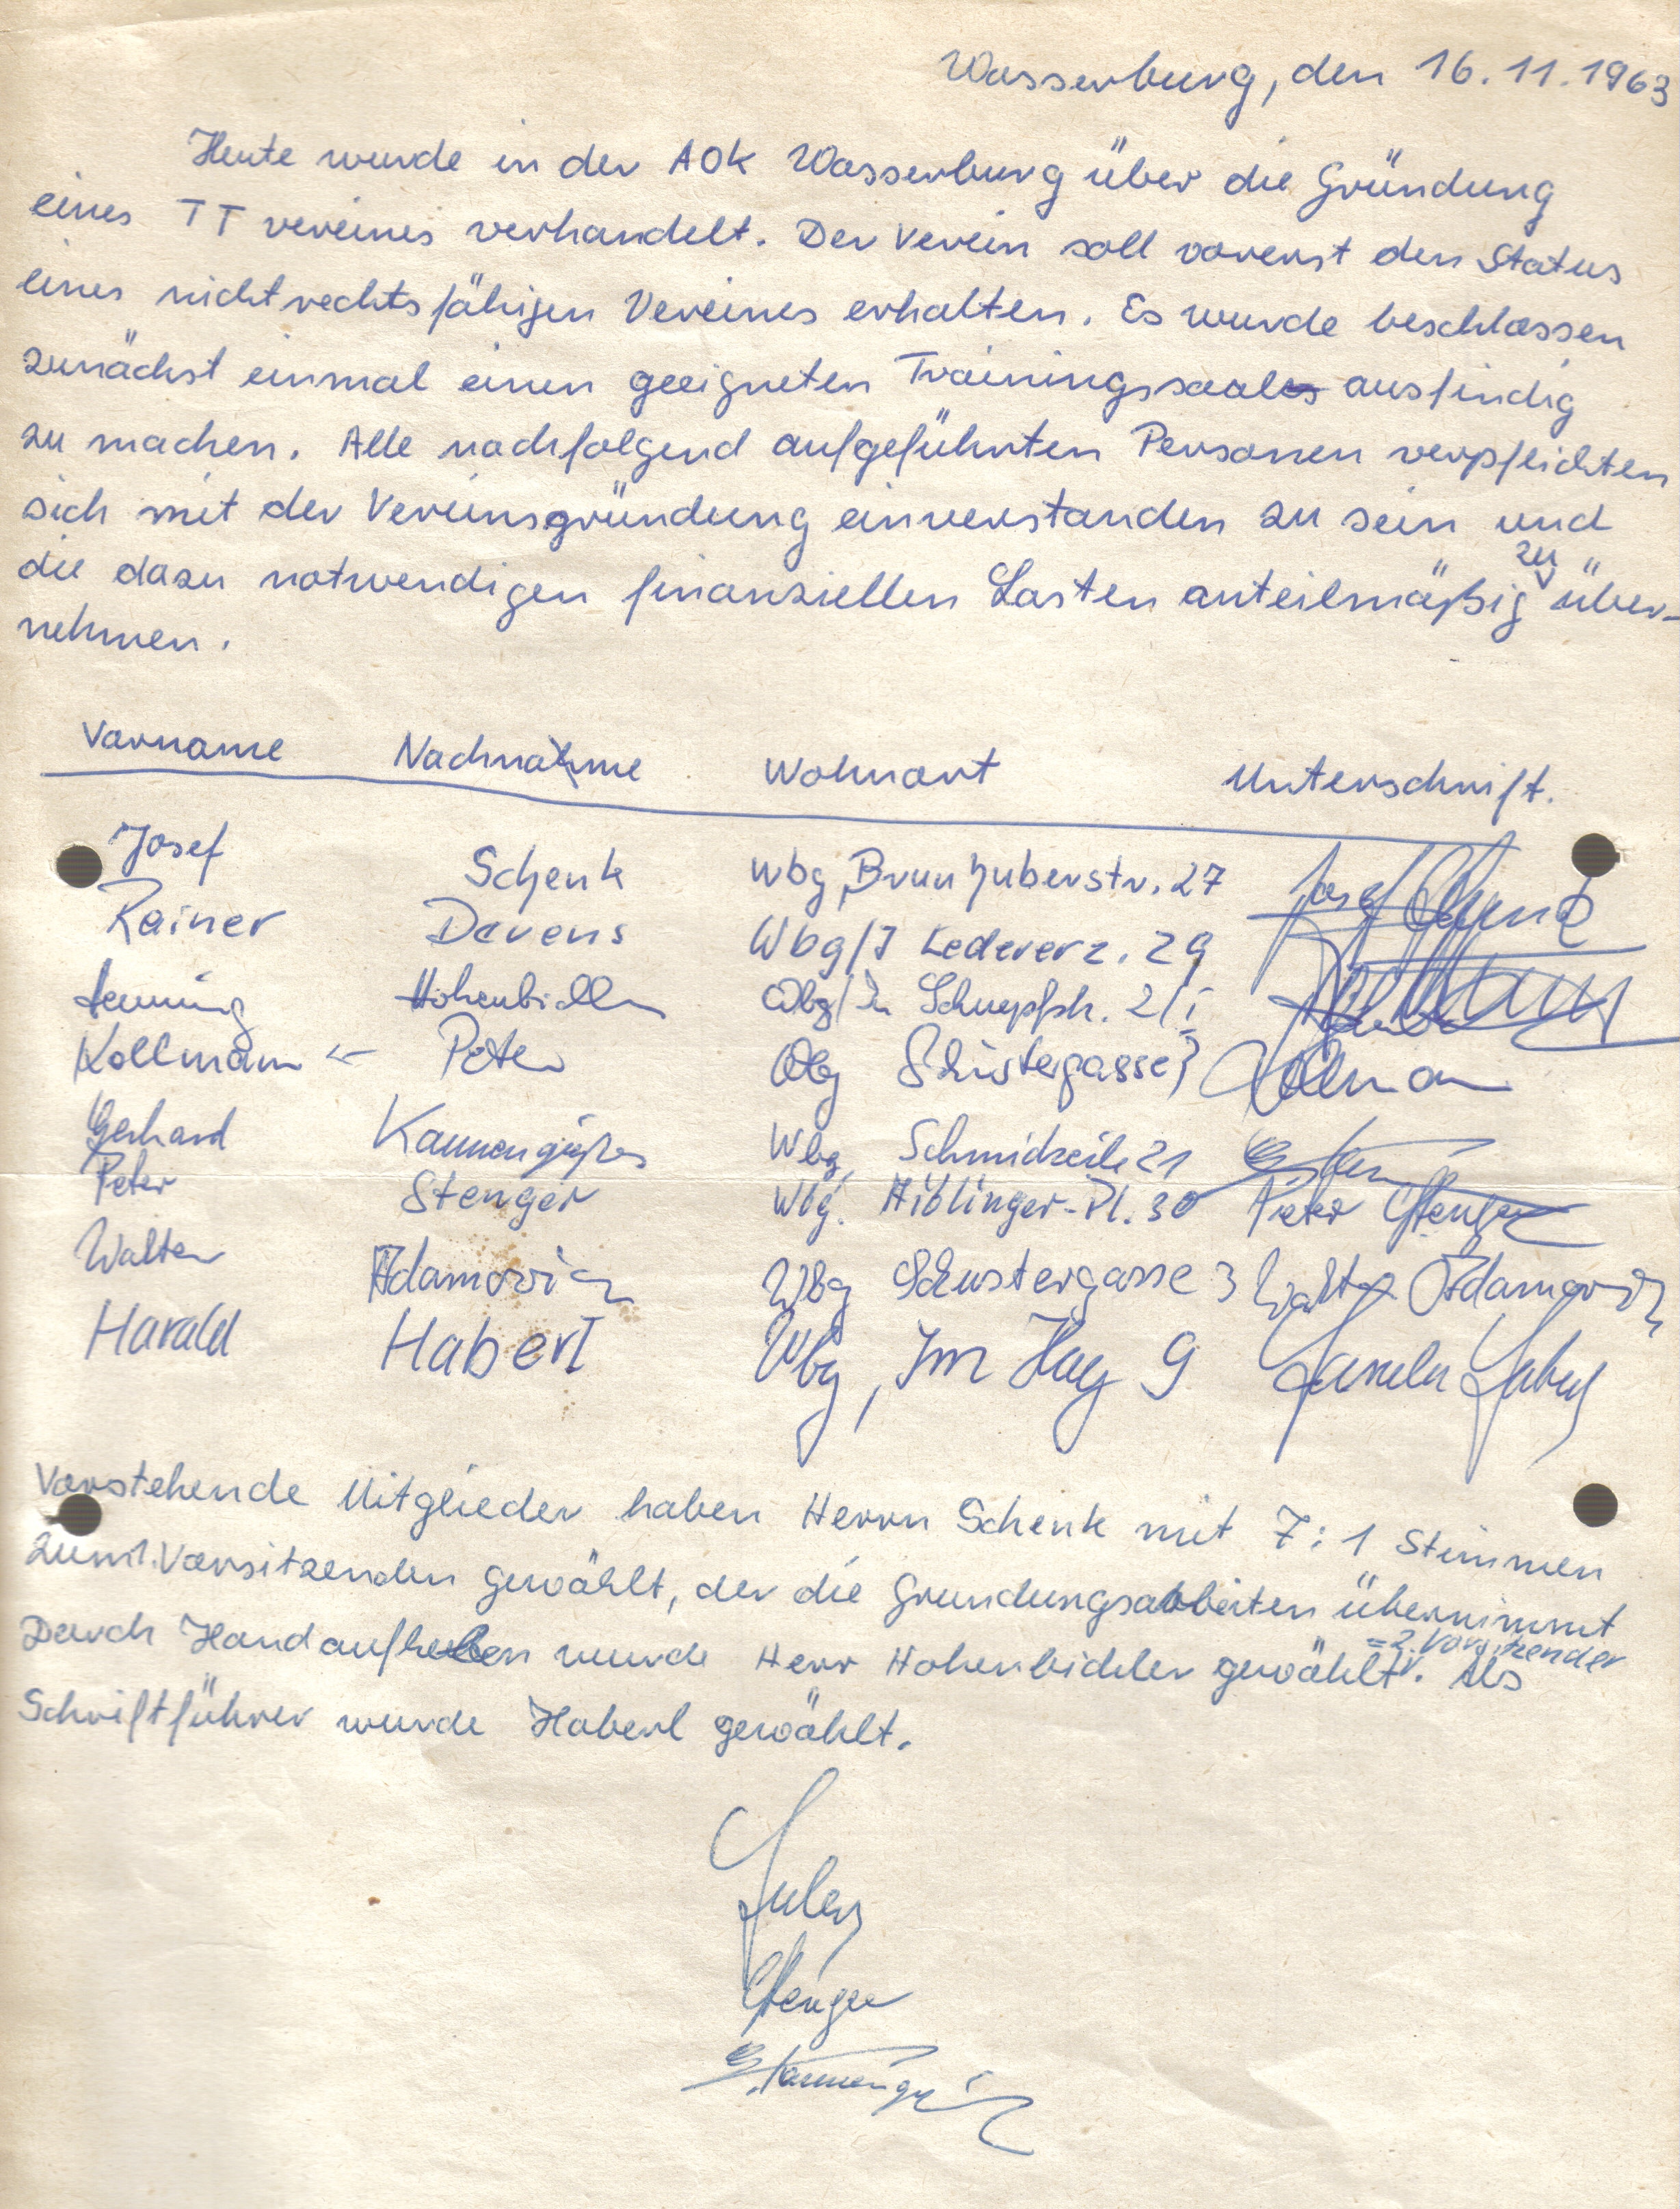 Wasserburg, den 16.11.1963
Heute wurde in der AOK Wasserburg über die Gründung
eines TT vereines verhandelt. Der Verein soll vorerst den Status
eines nichtrechtsfähigen Vereines erhalten. Es wurde beschlossen
zunächst einmal einen geeigneten Trainingssaal ausfindig
zu machen. Alle nachfolgend aufgeführten Personen verpflichten
sich mit der Vereinsgründung einverstanden zu sein und
die dazu notwendigen finanziellen Lasten anteilmäßig zu über-
nehmen.
Vorname Nachname Wohnort Unterschrift.
Josef Schenk Wbg, Brunhuberstr. 27 Josef Schenk
Rainer Devens Wbg/I Ledererz. 29
Henning Hohenbichler Wbg/In Schnepfstr. 2/I
Kollmann ← Peter Wbg Schustergasse 3 Kollmann
Gerhard Kannengießer Wbg, Schmidzeile 21
Peter Stenger Wbg. Aiblinger-Pl. 30 Peter Stenger
Walter Adamovic Wbg Schustergasse 3 Walter Adamovic
Harald Haberl Wbg, Im Hag 9 Harald Haberl
Vorstehende Mitglieder haben Herrn Schenk mit 7:1 Stimmen
zum 1. Vorsitzenden gewählt, der die Grundungsarbeiten übernimmt
Durch Handaufheben wurde Herr Hohenbichler gewählt =2. Vorsitzender. Als
Schriftführer wurde Haberl gewählt.
Haberl
Stenger
G. Kannengießer